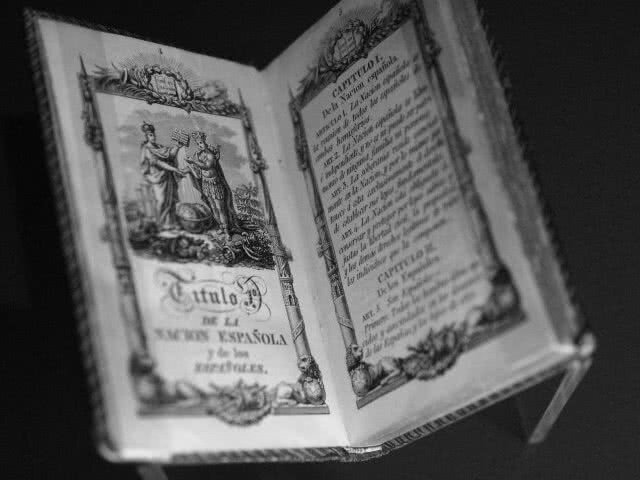 Titulo 1º
DE LA
NACION ESPAÑOLA
y de los
ESPAÑOLES.
CAPITULO I.
De la Nacion española.
ARTICULO 1. La Nacion española es
la reunion de todos los españoles de
ambos hemisferios.
ART. 2. La Nacion española es libre
é independiente, y no es ni puede ser patri-
monio de ninguna familia ni persona.
ART. 3. La soberanía reside esencial-
mente en la Nacion, y por lo mismo per-
tenece á esta exclusivamente el derecho
de establecer sus leyes fundamentales.
ART. 4. La Nacion está obligada á
conservar y proteger por leyes sabias y
justas la libertad civil, la propiedad
y los demas derechos legítimos de todos
los individuos que la componen.
CAPITULO II.
De los Españoles.
ART. 5. Son Españoles:
Primero. Todos los hombres libres na-
cidos y avecindados en los dominios
de las Españas y los hijos de estos.